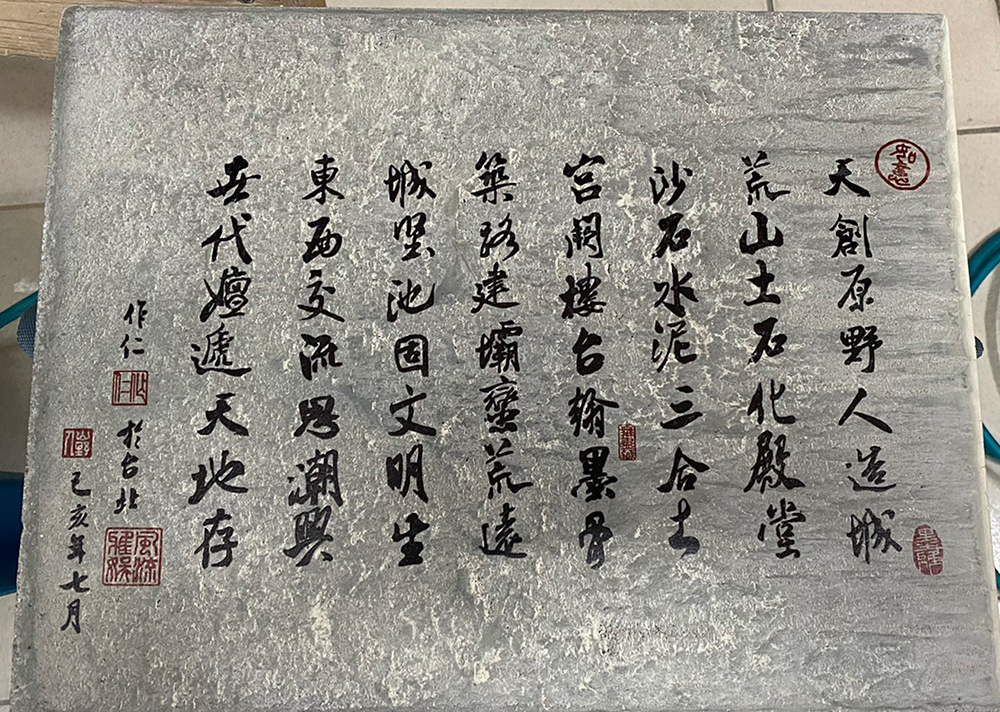 如意
天創原野人造城
荒山土石化殿堂
沙石水泥三合土
宮闕樓台翰墨骨
築路建壩蠻荒遠
城堅池固文明生
東西交流思潮興
世代嬗遞天地存
作仁
於台北
己亥年七月
風流
雅娛